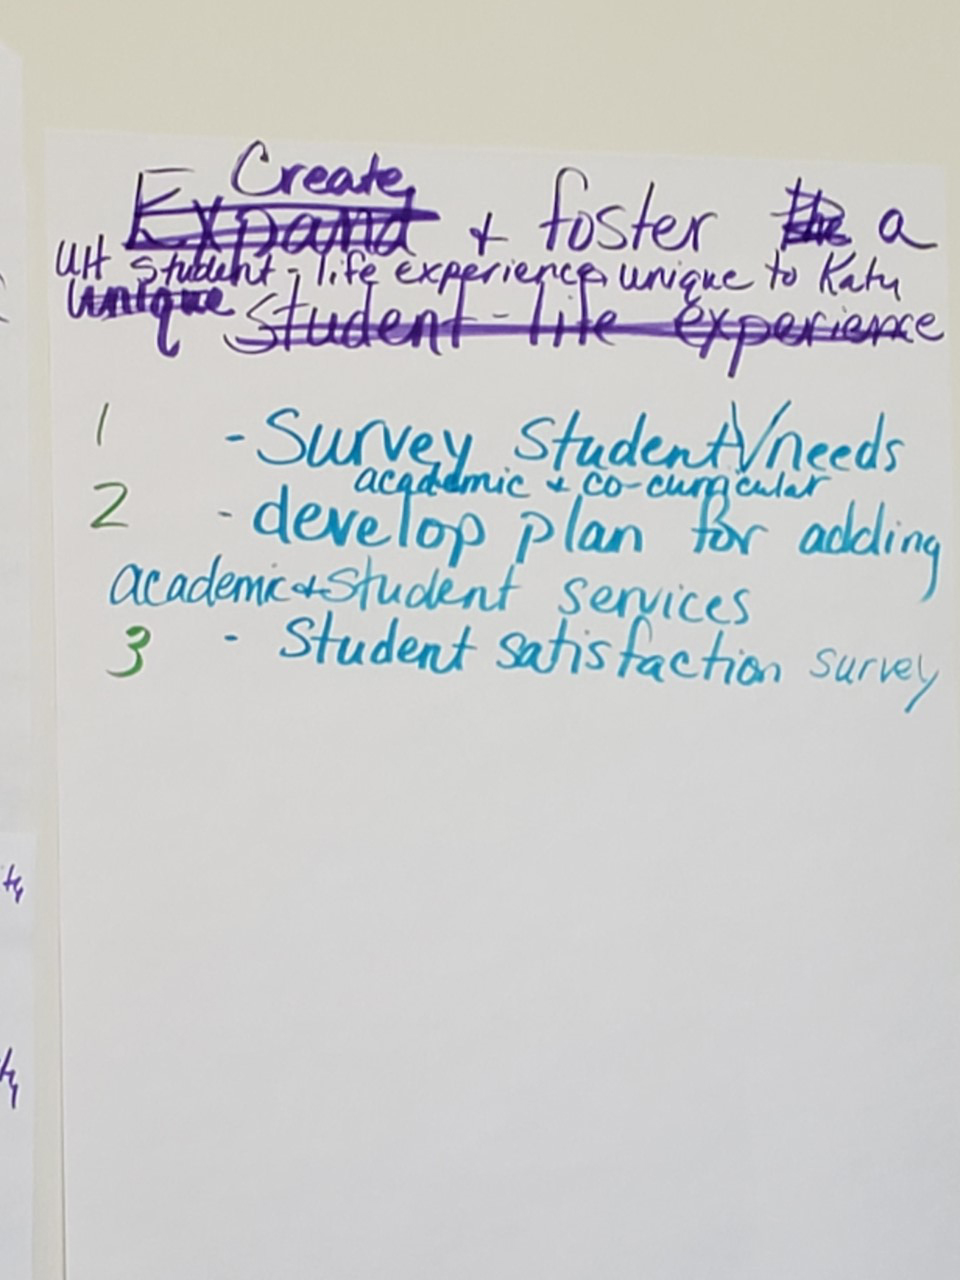 Create
Expand + foster the a
UH Student-life experience unique to Katy
unique Student-life experience
1 - Survey Student needs
academic + co-curricular
2 - develop plan for adding
academic + Student services
3 - Student satisfaction survey